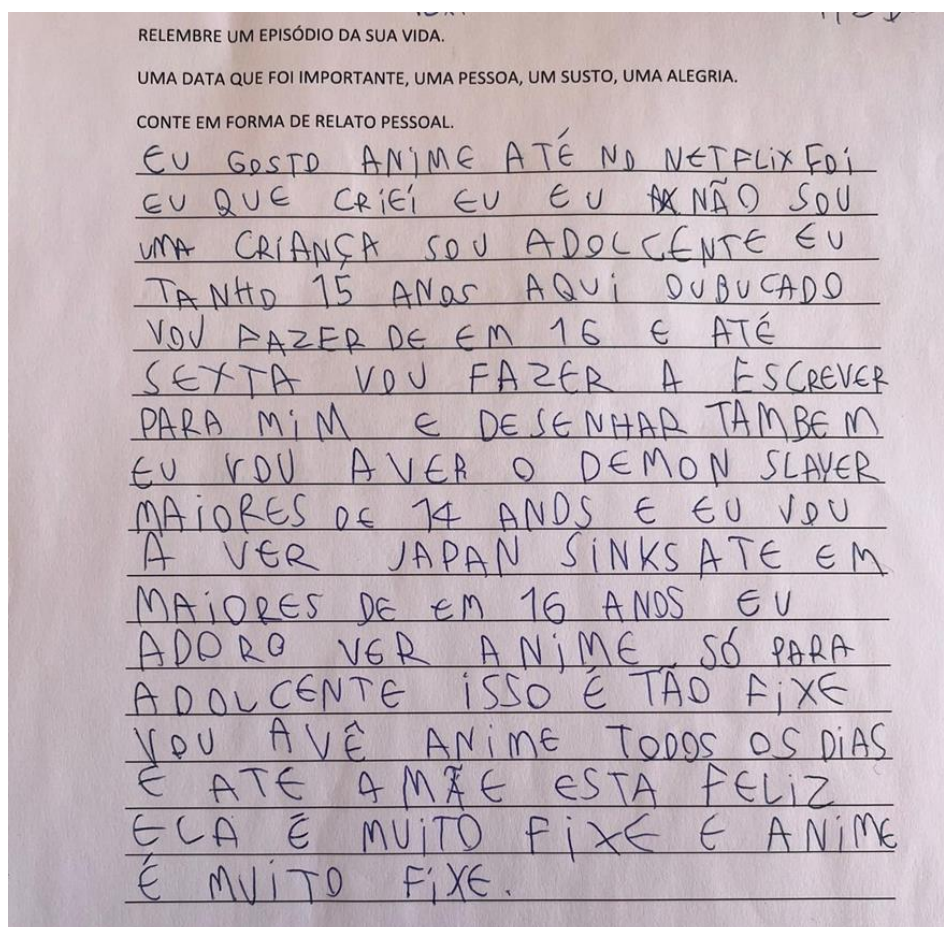 RELEMBRE UM EPISÓDIO DA SUA VIDA.
UMA DATA QUE FOI IMPORTANTE, UMA PESSOA, UM SUSTO, UMA ALEGRIA.
CONTE EM FORMA DE RELATO PESSOAL.
EU GOSTO ANIME ATÉ NO NETFLIX FOI
EU QUE CRIEÍ EU EU NÃO SOU
UMA CRIANÇA SOU ADOLCCENTE EU
TANHO 15 ANOS AQUI OUBUCADO
VOU FAZER DE EM 16 E ATÉ
SEXTA VOU FAZER A ESCREVER
PARA MIM E DESENHAR TAMBEM
EU VOU A VER O DEMON SLAYER
MAIORES DE 14 ANOS E EU VOU
A VER JAPAN SINKS ATE EM
MAIORES DE EM 16 ANOS EU
ADORO VER ANIME SÓ PARA
ADOLCENTE ISSO É TÃO FIXE
VOU AVÊ ANIME TODOS OS DIAS
E ATE A MÃE ESTA FELIZ
ELA É MUITO FIXE E ANIME
É MUITO FIXE.